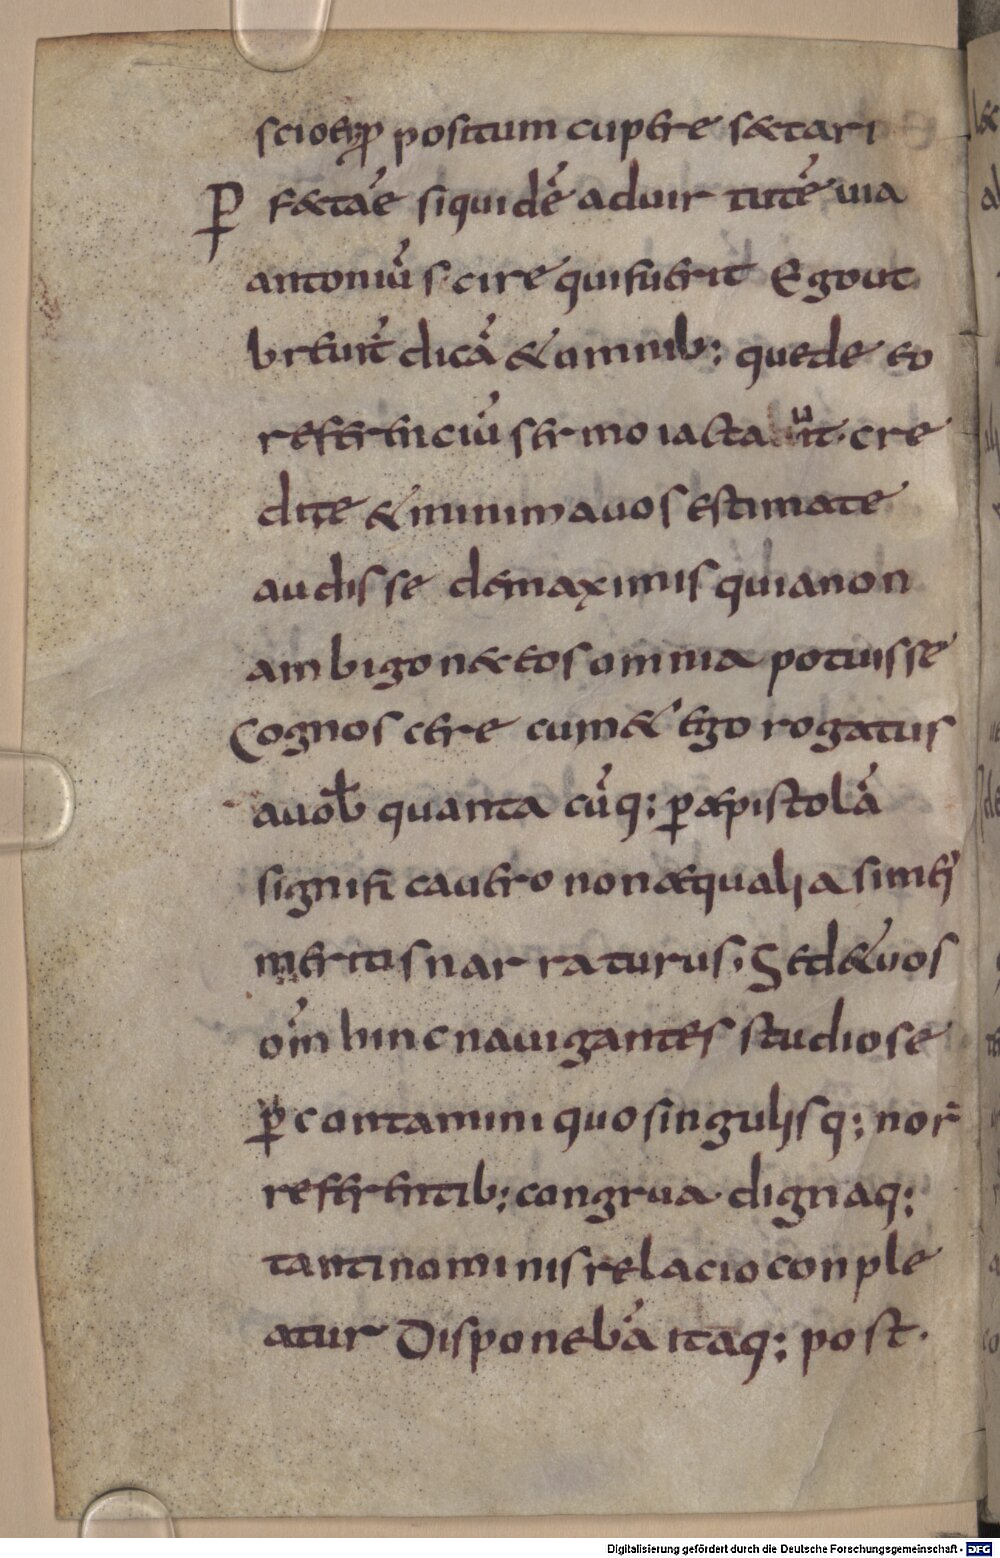 scio & ꝓpositum cupere sectari
P fectae siquidē aduirtutē uia
antoniū scire quifuerit Egout
breuit̄ dicā &omnib; quede eo
referenciū sermo iactauit· cre
dite &minimauos estimate
audisse demaximis quianon
ambigon&eosomnia potuisse
Cognoscere cum& ego rogatus
auob̄ quanta cūq; ꝑæpistolā
significauero nonæqualia simei'
meritisnarraturus· Sed&uos
om̄ hinc nauigantes studiose
ꝑcontamini quosingulisq; nor̄
referentib; congrua dignaq;
tantinominisrelacio conple
atur Disponebā itaq; post·
Digitalisierung gefördert durch die Deutsche Forschungsgemeinschaft - DFG